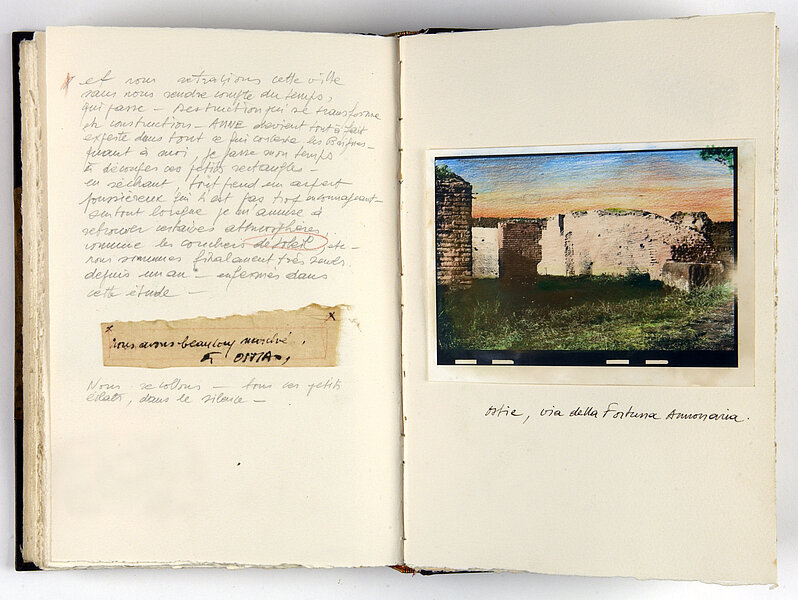 et nous retraçions cette ville
sans nous rendre compte du temps,
qui passe - Destruction qui se transforme
en construction - ANNE devient tout à fait
experte dans tout ce qui concerne les
quant à moi, je passe mon temps
à découper ces petits rectangles -
en séchant, tout prend un aspect
poussiéreux qui n'est pas trop encourageant -
surtout lorsque je m'amuse à
retrouver certaines athmosphères
comme les couchers de soleil, etc -
nous sommes finalement très seuls,
depuis un an - enfermés dans
cette étude -
nous avons beaucoup marché.
À OSTIA,
Nous recollons - tous ces petits
éclats, dans le silence -
Ostie, via della Fortuna Annonaria.